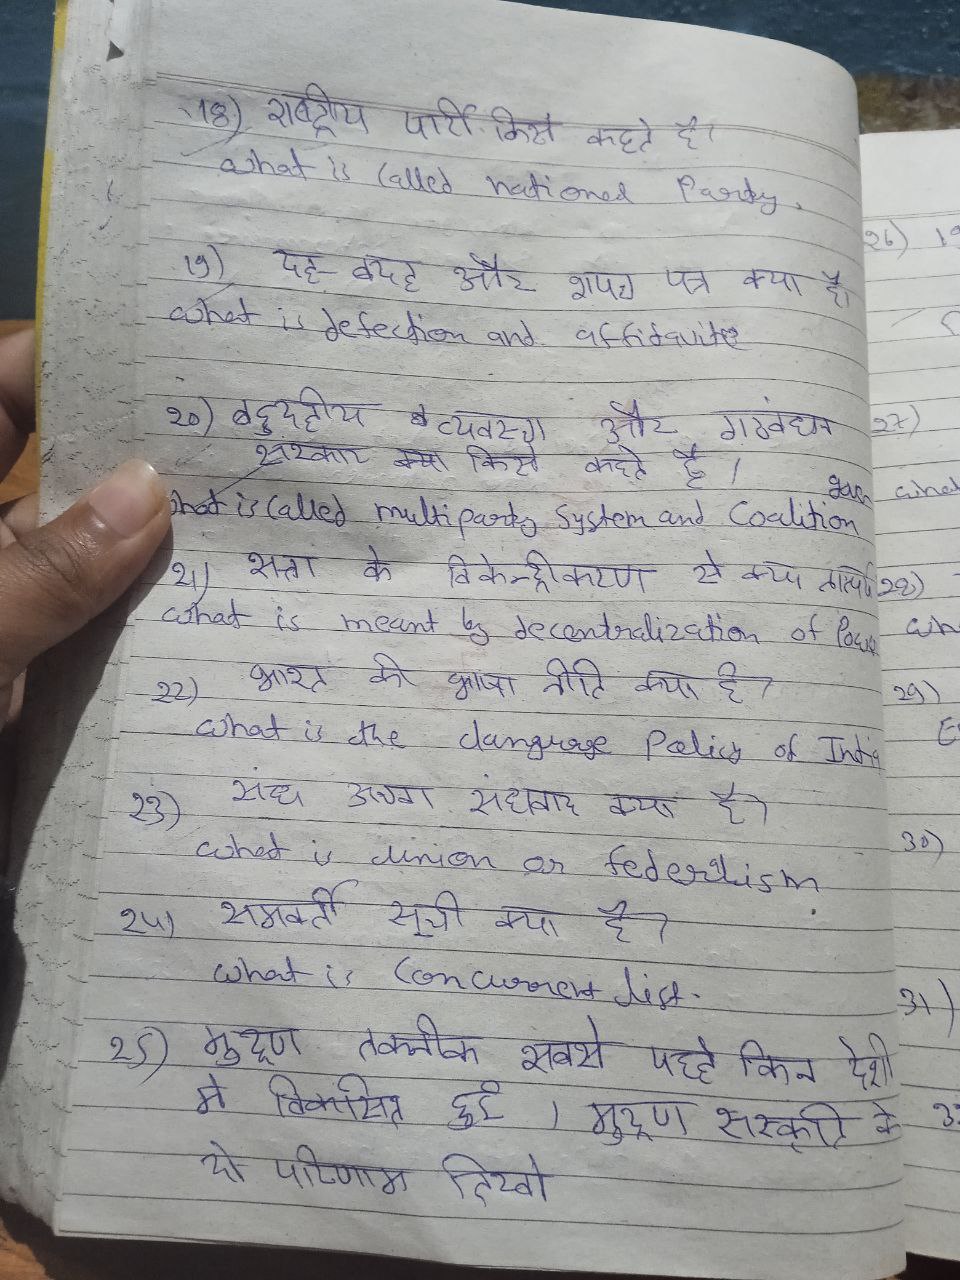 18) राष्ट्रीय पार्टी किसे कहते है।
what is called national Party.
19) और शपथ पत्र क्या है।
what is defection and affidavite
20) बहुदलीय व्यवस्था और गठबंधन
सरकार किसे कहते है।
what is called multiparty system and Coalition
21) सत्ता के विकेन्द्रीकरण से क्या तात्पर्य
what is meant by decentralization of Power
22) भारत की भाषा नीति क्या है?
what is the language Policy of India
23) संघ अथवा संघवाद क्या है?
what is union or federalism
24) समवर्ती सूची क्या है?
what is Concurrent list.
25) मुद्रण तकनीक सबसे पहले किन देशो
मे विकसित हुई। मुद्रण संस्कृति के
दो परिणाम लिखो
26) 19
27)
what
28)
wh
29)
E
30)
31)